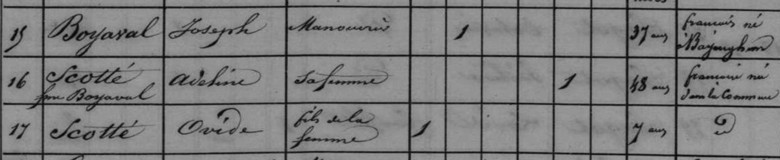 15 Boyaval Joseph Manouvrier 1 37 ans français né à Bayenghem
16 Scotté fme Boyaval Adeline Sa femme 1 48 ans française née dans la Commune
17 Scotté Ovide fils de la femme 1 7 ans